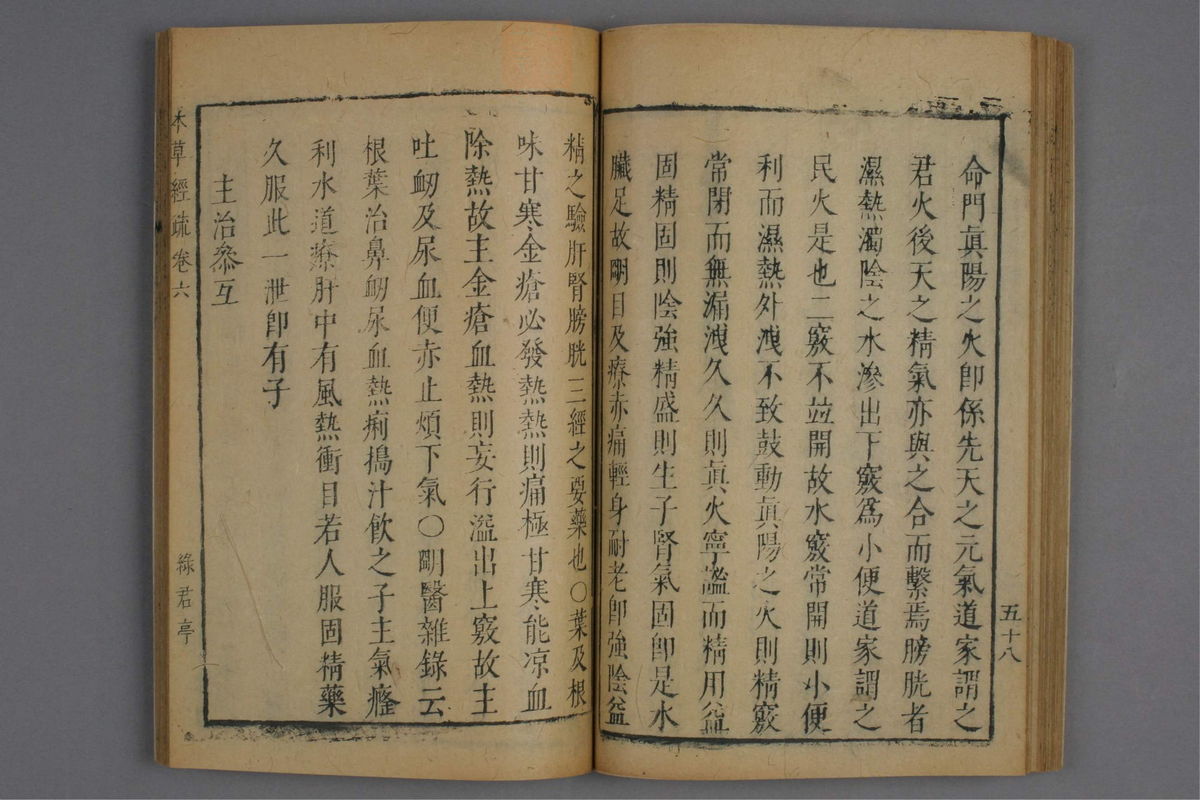 命門眞陽之火卽係先天之元氣道家謂之
君火後天之精氣亦與之合而繫焉膀胱者
濕熱濁陰之水滲出下竅爲小便道家謂之
民火是也二竅不並開故水竅常開則小便
利而濕熱外洩不致鼓動眞陽之火則精竅
常閉而無漏洩久久則眞火寧謐而精用益
固精固則陰強精盛則生子腎氣固卽是水
臟足故明目及療赤痛輕身耐老卽強陰益
五十八
精之驗肝腎膀胱三經之要藥也〇葉及根
味甘寒金瘡必發熱熱則痛極甘寒能凉血
除熱故主金瘡血熱則妄行溢出上竅故主
吐衂及尿血便赤止煩下氣〇明醫雜錄云
根葉治鼻衂尿血熱痢搗汁飲之子主氣癃
利水道療肝中有風熱衝目若人服固精藥
久服此一泄卽有子
主治叅互
本草經疏卷六
綠君亭